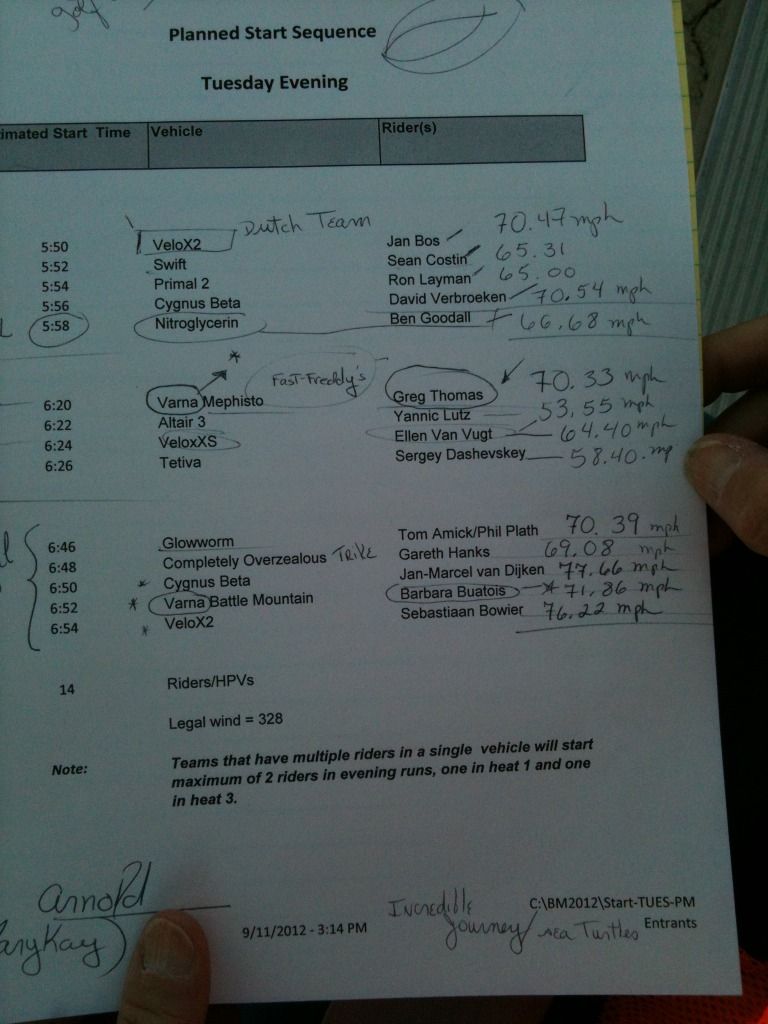 golf
Planned Start Sequence
Tuesday Evening
imated Start Time Vehicle Rider(s)
Dutch Team
5:50 VeloX2 Jan Bos 70.47 mph
5:52 Swift Sean Costin 65.31
5:54 Primal 2 Ron Layman 65.00
5:56 Cygnus Beta David Verbroeken 70.54 mph
5:58 Nitroglycerin Ben Goodall 66.68 mph
* Fast-Freddy's
6:20 Varna Mephisto Greg Thomas 70.33 mph
6:22 Altair 3 Yannic Lutz 53,55 mph
6:24 VeloxXS Ellen Van Vugt 64.40 mph
6:26 Tetiva Sergey Dashevskey 58.40. mp
6:46 Glowworm Tom Amick/Phil Plath 70.39 mph
6:48 Completely Overzealous Trike Gareth Hanks 69.08 mph
6:50 * Cygnus Beta Jan-Marcel van Dijken 77.66 mph
6:52 * Varna Battle Mountain Barbara Buatois * 71,86 mph
6:54 * VeloX2 Sebastiaan Bowier 76.22 mph
14 Riders/HPVs
Legal wind = 328
Note: Teams that have multiple riders in a single vehicle will start
maximum of 2 riders in evening runs, one in heat 1 and one
in heat 3.
Arnold
aryKay)
9/11/2012 - 3:14 PM
Incredible
Journey/Sea Turtles
C:\BM2012\Start-TUES-PM
Entrants